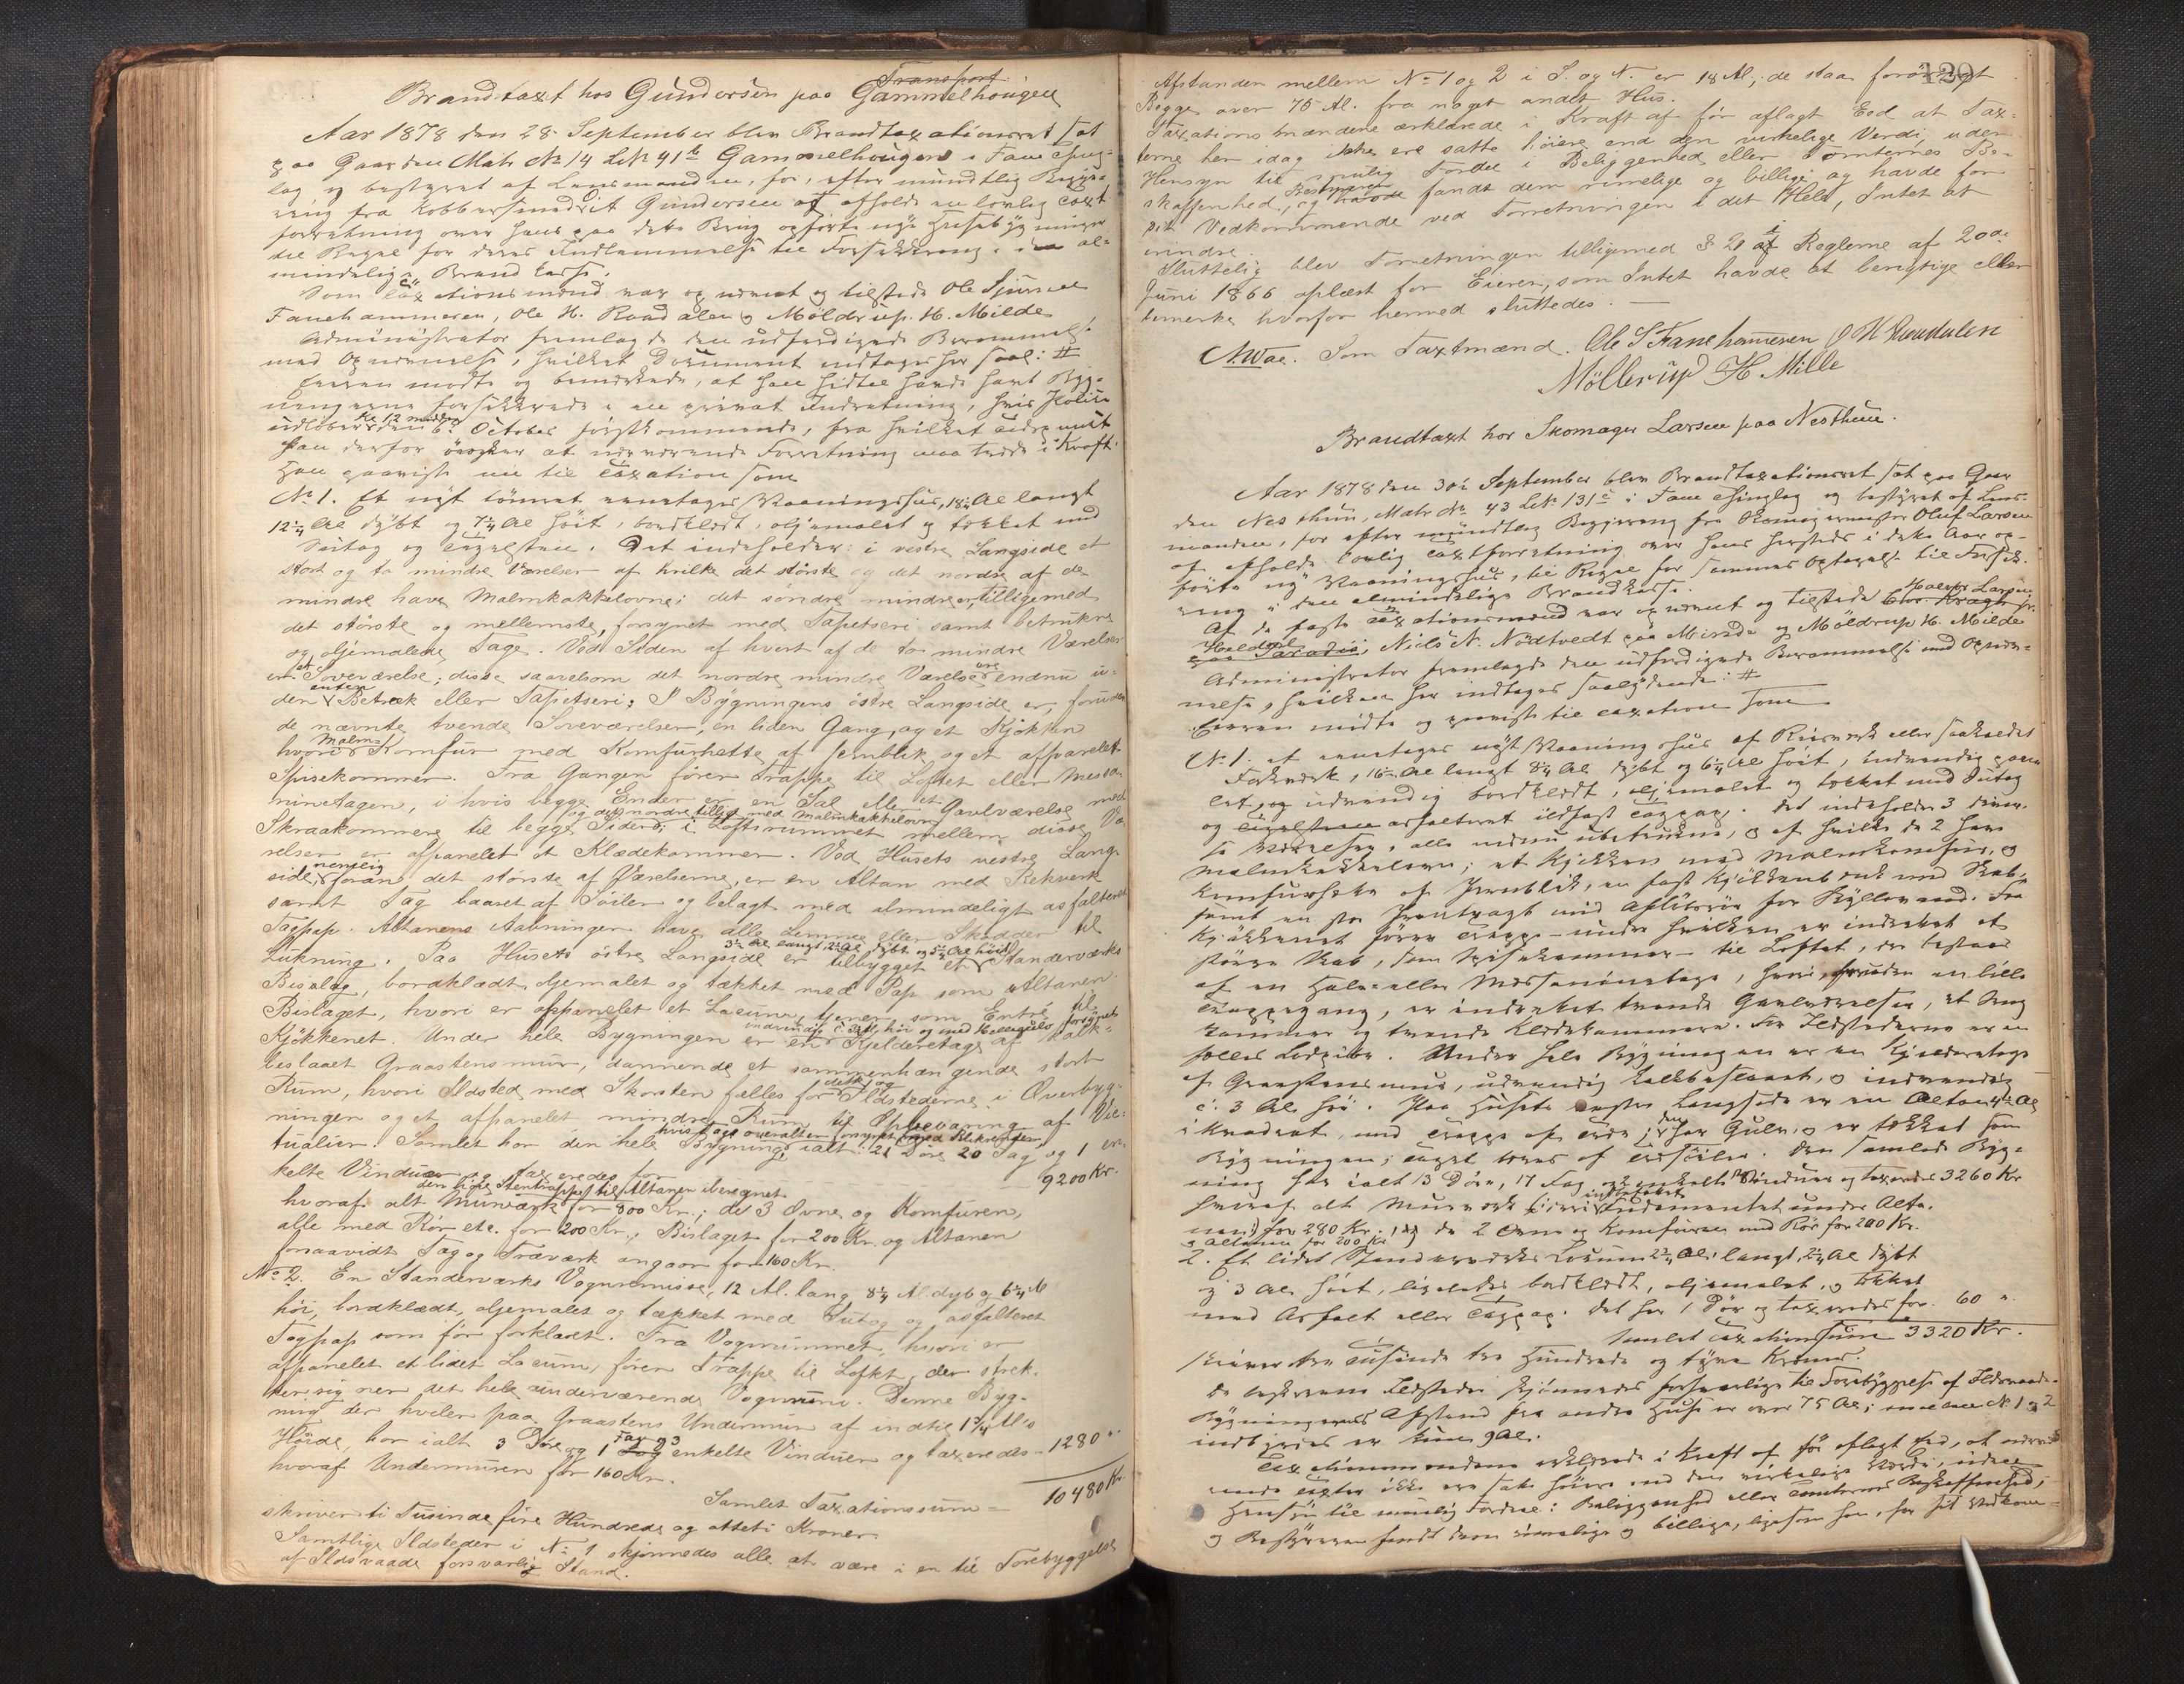 Transport
Brandtaxt hos Gundersen paa Gammelhougen
Aar 1878 den 28. September blev Brandtaxationsret sat
paa Gaarden Matr No 14 LNo 41b Gammelhougen i Fane Thing-
lag og bestyret af Lensmanden, for, efter mundtlig Begjæ-
ring fra Kobbersmed Gundersen at afholde en lovlig Taxt
forretning over hans paa dette Brug opførte nye Husebygninger
til Regel for deres Indlemmelse til Forsikkring i den al-
mindelige Brand Casse.
Som Taxationsmænd var opnævnt og tilstede Ole
Fanehammeren, Ole H. Raadalen og Möldrup H. Milde
Administrator fremlagde den udfærdigede Berammelse
med Opnævnelse, hvilket Document indtages her saal: #
Eieren mødte og bemærkede, at han hidtil havde havt Byg-
ningerne forsikkrede i en privat Indretning, hvis Police
udløber den 6te October førstkommende, fra hvilket Tidspunkt
han derfor ønsker at nærværende Forretning maa træde i Kraft.
Han paaviste nu til Taxation som
No 1. Et nyt tømret eenetages Vaaningshus, 18 Al langt
12 1/4 Al dybt og 7 1/4 Al høit, bordklædt, oljemalet og tækket med
Sutag og Tagsteen. Det indeholder: i vestre Langside et
stort og to mindre Værelser af hvilke det største og det nordre af de
mindre have Malmkakkelovne; det søndre mindre er, tilligemed
det største og mellemste, forsynet med Tapetseri samt betrukne
og oljemalede Tage. Ved Siden af hvert af de to mindre Værelser
er et Soveværelse; disse saavelsom det nordre mindre Værelse ere endnu u-
den enten Betræk eller Tapetseri; I Bygningens østre Langside er, foruden
de nævnte tvende Soveværelser, en liden Gang, og et Kjøkken
hvori Malm- Komfur med Komfurhætte af Jernblik og et afpanelet
Spisekammer. Fra Gangen fører Trappe til Loftet eller Messa-
ninetagen, i hvis begge Ender er en Sal eller et Gavlværelse med
(og det nordre tillige med Malmkakkelovn)
Skraakommers til begge Sider; i Loftsrummet mellem disse Væ-
relser er afpanelet et Klædekammer. Ved Husets vestre Lang-
side, nemlig foran det største af Værelserne, er en Altan med Rekværk
samt Tag baaret af Søiler og belagt med almindeligt asfalteret
Tagpap. Altanens Aabninger have alle Lemme eller Skodder til
Lukning. Paa Husets østre Langside er tilbygget et Standerværks
3 1/2 Al langt 2 1/2 Al dybt og 5 1/2 Al høit
Bislag, bordklædt, oljemalet og tækket med Pap som Altanen.
Bislaget, hvori er afpanelet et Locum, tjener som Entré til
Kjøkkenet. Under hele Bygningen er en Kjelderetage af Kalk-
indvendig c. 3 Al høi og med Hellegulv forsynet
beslaaet Graastensmur, dannende et sammenhængende stort
Rum, hvori Ildsted med Skorsten fælles for dette og Ildstederne i Overbyg-
ningen og et afpanelet mindre Rum til Opbevaring af Vic-
tualier. Samlet har den hele Bygning ialt: 21 Døre 20 Fag og 1 en-
kelte Vinduer og taxeredes for 9200 Kr.
hvoraf alt Murværk for 800 Kr.; de 3 Ovne og Komfuren,
den høie Stentrappe til Altanen iberegnet
alle med Rør etc. for 200 Kr., Bislaget for 200 Kr. og Altanen
forsaavidt Tag og Træværk angaar for 160 Kr.
No 2. En Standerværks Vognremisse, 12 Al. lang 8 1/4 Al. dyb og 6 1/4 Al
høi, bordklædt, oljemalet og tækket med Sutag og asfalteret
Tagpap som før forklaret. Fra Vognrummet, hvori er
afpanelet et lidet Locum, fører Trappe til Loftet, der stræk-
ker sig over det hele underværende Vognrum. Denne Byg-
ning der hviler paa Graastens Undermur af indtil 1 3/4 Al's
Høide, har ialt 3 Døre og 1 Fag og 3 enkelte Vinduer og taxeredes 1280 "
hvoraf Undermuren for 160 Kr.
Samlet Taxationssum = 10480 Kr.
skriver ti Tusinde fire Hundrede og otteti Kroner
Samtlige Ildsteder i No 1 skjønnedes alle at være i en til Forebyggelse
af Ildsvaade forsvarlig Stand.
129
Afstanden mellem No 1 og 2 i S. og N. er 18 Al.; de staa forøvrigt
Begge over 75 Al. fra noget andet Hus.
Taxationsmændene erklærede i Kraft af før aflagt Eed at Tax-
terne her idag ikke ere satte høiere end den virkelige Værdi, uden
Hensyn til mulig Fordel i Beliggenhed eller Tomternes Be-
skaffenhed, og Bestyreren fandt dem rimelige og billige og havde for
sit Vedkommende ved Forretningen i det Hele, Intet at
erindre.
Sluttelig blev Forretningen tilligemed § 21 i Reglerne af 20de
Juni 1866 oplæst for Eieren, som Intet havde at berigtige eller
bemærke hvorfor hermed sluttedes. —
Som Taxtmænd. Ole S Fanehammeren O H Raadalen
Möllerup H. Mille
Brandtaxt hos Skomager Larsen paa Nesthun.
Aar 1878 den 30te September blev Brandtaxationsret sat paa Gaar
den Nesthun, Matr No 43 LNo 131c i Fane Thinglag og bestyret af Lens-
manden, for efter mundtlig Begjæring fra Skomagermester Oluf Larsen
at afholde lovlig Taxtforretning over hans hersteds i dette Aar op-
førte nye Vaaningshus, til Regel for sammes Optagelse til Forsik-
ring i den almindelige Brandkasse.
Af de faste Taxationsmænd var opnævnt og tilstede
Niels N. Nödtvedt paa Mirede og Möldrup H. Milde
Administrator fremlagde den udfærdigede Berammelse med Opnæv-
nelse, hvilken her indtages saalydende: #
Eieren mødte og paaviste til Taxation som
No 1. et eenetages nyt Vaaningshus af Reisværk eller saakaldet
16 Al langt 8 1/4 Al dybt og 6 1/4 Al høit, indvendig pane-
let, og udvendig bordklædt, oljemalet og tækket med Sutag
og asfalteret ildfast Tagpap. Det indeholder 3
Værelser, alle endnu ubetrukne, og af hvilke de 2 have
Malmkakkelovne; et Kjøkken med Malmkomfur, og
Komfurhætte af Jernblik, en fast Kjøkkenbænk med Skab,
samt en stor med Afløbsrør for Skyllevand. Fra
Kjøkkenet fører Trappe - under hvilken er indrettet et
større Skab, som Spisekammer - til Loftet, der bestaar
af en Halv- eller Messanineetage, hvori, foruden en lille
Trappegang, er indrettet tvende Gavlværelser, et Seng
kammer og tvende Klædekammere. For Ildstederne er en
fælles Ledpibe. Under hele Bygningen er en Kjelderetage
af Graastensmur, udvendig kalkbeslaaet, og indvendig
c. 3 Al. høi. Paa Husets vestre Langside er en Altan 4 1/2 Al
i Kvadrat, med Trappe af Træ; den har Gulv, og er tækket som
Bygningen; Taget bæres af Træsøiler. Den samlede Byg-
ning har ialt 13 Døre, 17 Fag og 2 enkelte Vinduer og taxeredes 3260 Kr
hvoraf alt Murværk (heri indbefattet Fundamentet under Alta-
nen) for 280 Kr.; de 2 Ovne og Komfuren med Rør for 200 Kr.
og Altanen for 200 Kr
2. Et lidet Standerværks Locum 2 3/4 Al langt, 2 1/4 Al dybt
og 3 Al. høit, ligeledes bordklædt, oljemalet, og tækket
med Asfalt eller Tagpap. Det har 1 Dør og taxeredes for 60 "
Samlet Taxationssum 3320 Kr.
skriver tre Tusinde tre Hundrede og tyve Kroner.
De beskrevne Ildsteder skjønnedes forsvarlige til Forebyggelse af Ildsvaade.
Bygningernes Afstand fra andre Huse er over 75 Al; imellem No 1 og 2
indbyrdes er kun 9 Al.
Taxationsmændene erklærede i Kraft af før aflagt Eed, at nærvæ-
rende Taxter ikke ere satte høiere end den virkelige Værdi, uden
Hensyn til mulig Fordeel i Beliggenhed eller Tomternes Beskaffenhed,
og Bestyreren fandt dem rimelige og billige, ligesom han, for sit Vedkom-